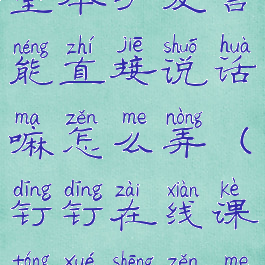 néng zhí jiē shuō huà
能直接说话
ma zěn me nòng
嘛怎么弄（
dīng dīng zài xiàn kè
钉钉在线课
xué shēng zěn me